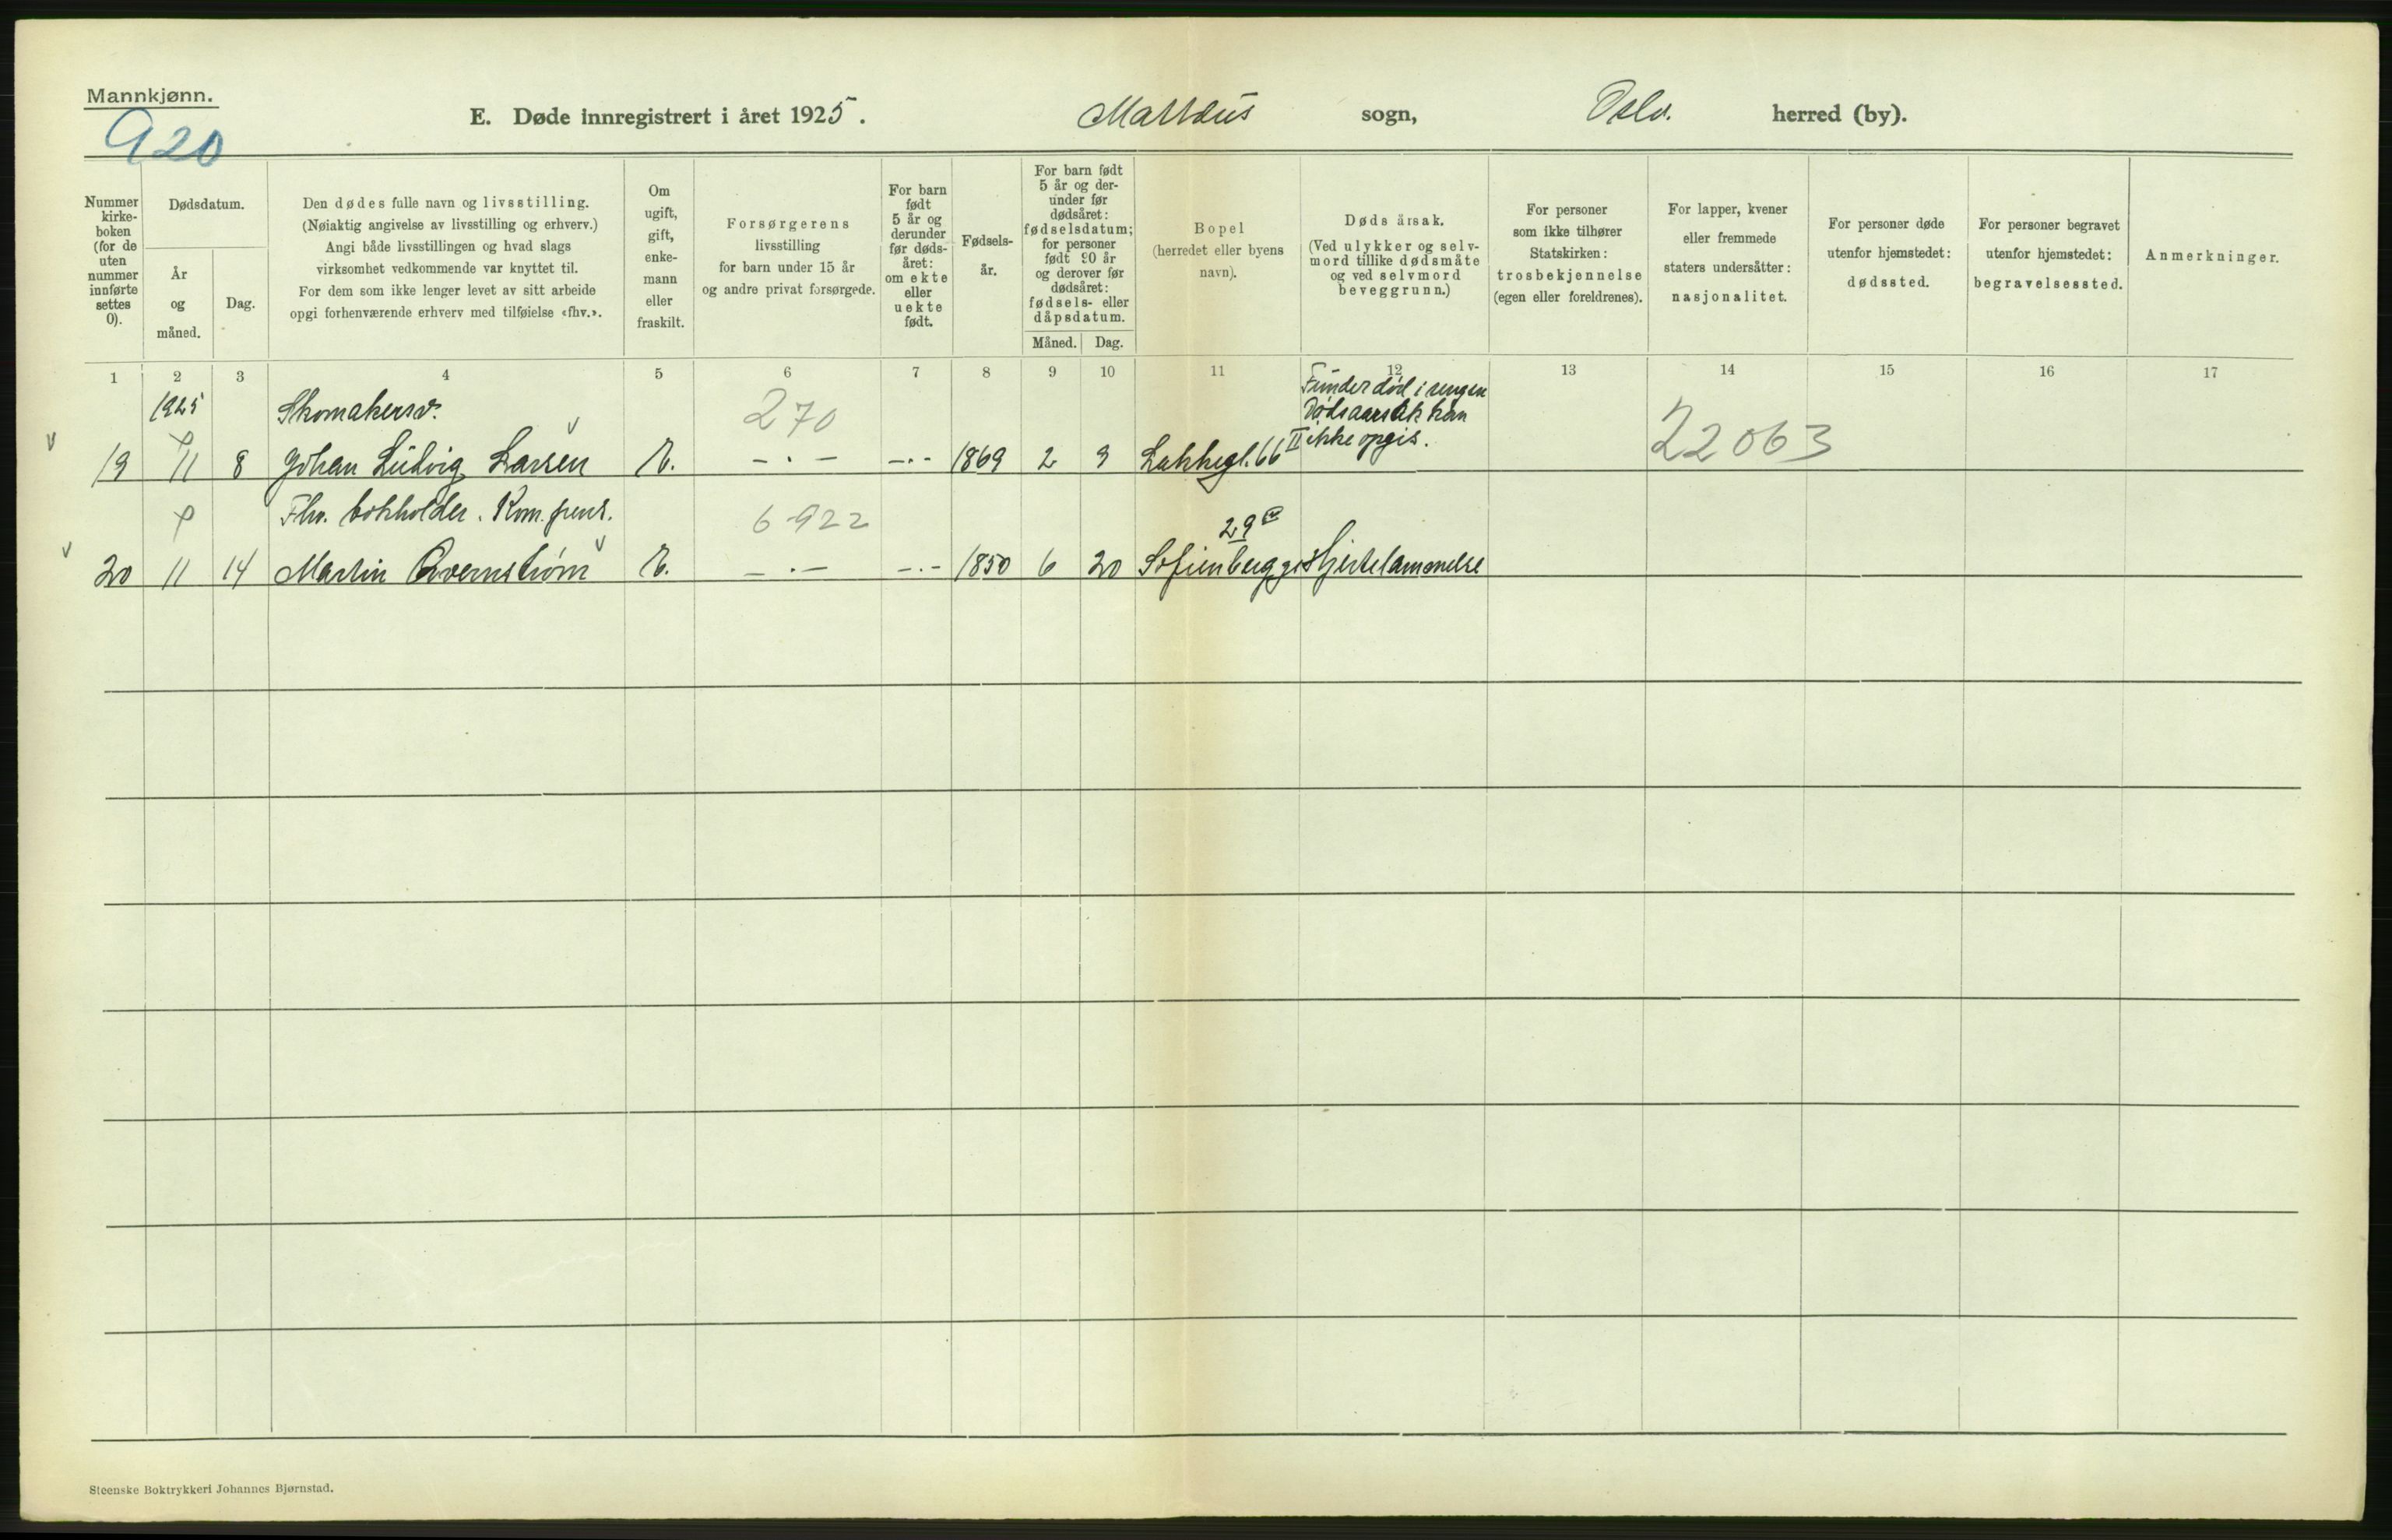 Mannkjønn.
920
E. Døde innregistrert i året 1925. Mattæus sogn, Oslo. herred (by).
Nummer kirke-boken (for de uten nummer innførte settes 0).
Dødsdatum.
År og måned.
Dag.
Den dødes fulle navn og livsstilling.
(Nøiaktig angivelse av livsstilling og erhverv.)
Angi både livsstillingen og hvad slags
virksomhet vedkommende var knyttet til.
For dem som ikke lenger levet av sitt arbeide
opgi forhenværende erhverv med tilføielse «fhv.».
Om ugift, gift, enke-mann eller fraskilt.
Forsørgerens
livsstilling
for barn under 15 år
og andre privat forsørgede.
For barn født 5 år og derunder før døds-året: om ekte eller uekte født.
Fødsels-år.
For barn født 5 år og der-under før dødsåret: fødselsdatum; for personer født 90 år og derover før dødsåret: fødsels- eller dåpsdatum.
Måned. Dag.
Bopel
(herredet eller byens navn).
Dødsårsak.
(Ved ulykker og selv-mord tillike dødsmåte og ved selvmord beveggrunn.)
For personer som ikke tilhører Statskirken: trosbekjennelse (egen eller foreldrenes).
For lapper, kvener eller fremmede staters undersåtter: nasjonalitet.
For personer døde utenfor hjemstedet: dødssted.
For personer begravet utenfor hjemstedet: begravelsessted.
Anmerkninger.
1 2 3 4 5 6 7 8 9 10 11 12 13 14 15 16 17
1925 Skomakersv. 270 Funder død i sengen
Dødsaarsak kan
ikke opgis. 22063
19 11 8 Johan Ludvig Larsen E. — . — — . — 1869 2 9 Lakkegt. 66 II
Fhv. bokholder. Kom. pens. 6922 29 a
20 11 14 Martin Qvernstrøm E. — . — — . — 1850 6 20 Sofienberggt Hjertelammelse
Steenske Boktrykkeri Johannes Bjørnstad.